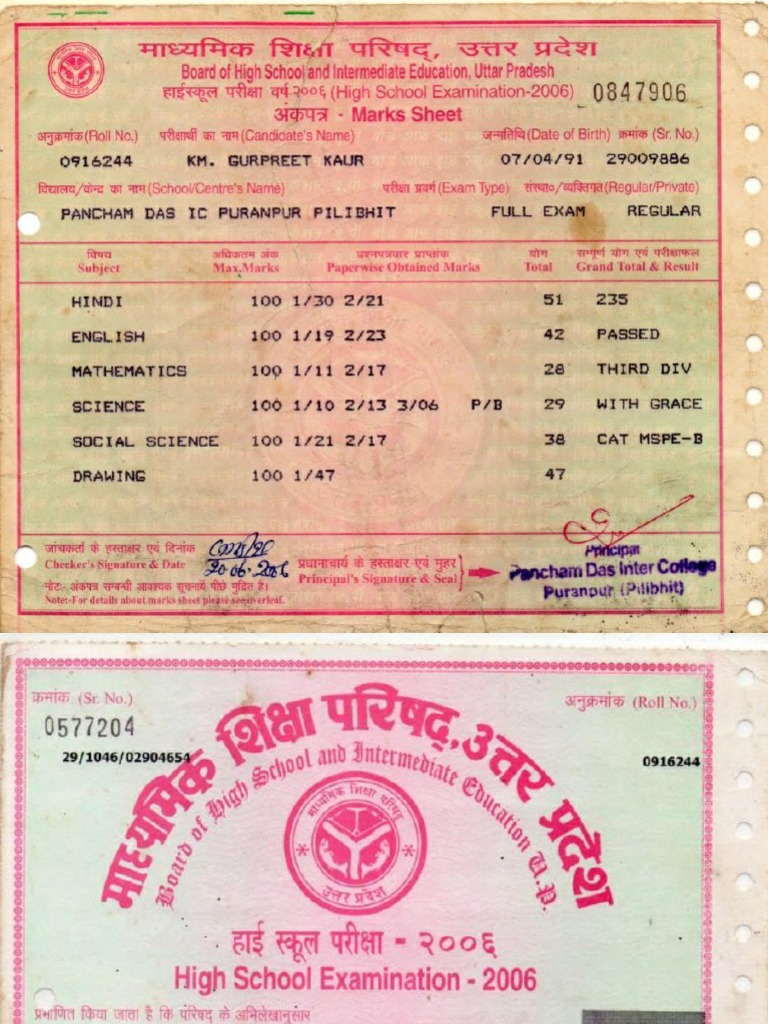 माध्यमिक शिक्षा परिषद्, उत्तर प्रदेश
Board of High School and Intermediate Education, Uttar Pradesh
हाईस्कूल परीक्षा वर्ष-२००६ (High School Examination-2006) 0847906
अंकपत्र - Marks Sheet
अनुक्रमांक (Roll No.) परीक्षार्थी का नाम (Candidate's Name) जन्मतिथि (Date of Birth) क्रमांक (Sr. No.)
0916244 KM. GURPREET KAUR 07/04/91 29009886
विद्यालय/केन्द्र का नाम (School/Centre's Name) परीक्षा प्रवर्ग (Exam Type) संस्थाo/व्यक्तिगत (Regular/Private)
PANCHAM DAS IC PURANPUR PILIBHIT FULL EXAM REGULAR
विषय अधिकतम अंक प्रश्नपत्रवार प्राप्तांक योग सम्पूर्ण योग एवं परीक्षाफल
Subject Max.Marks Paperwise Obtained Marks Total Grand Total & Result
HINDI 100 1/30 2/21 51 235
ENGLISH 100 1/19 2/23 42 PASSED
MATHEMATICS 100 1/11 2/17 28 THIRD DIV
SCIENCE 100 1/10 2/13 3/06 P/B 29 WITH GRACE
SOCIAL SCIENCE 100 1/21 2/17 38 CAT MSPE-B
DRAWING 100 1/47 47
जांचकर्ता के हस्ताक्षर एवं दिनांक
Checker's Signature & Date 20-06-2006
प्रधानाचार्य के हस्ताक्षर एवं मुहर
Principal's Signature & Seal
Principal
Pancham Das Inter College
Puranpur (Pilibhit)
नोट:- अंकपत्र सम्बन्धी आवश्यक सूचनायें पीछे मुद्रित है।
Note:-For details about marks sheet please see overleaf.
क्रमांक (Sr. No.) अनुक्रमांक (Roll No.)
0577204
29/1046/02904654 0916244
माध्यमिक शिक्षा परिषद्, उत्तर प्रदेश
Board of High School and Intermediate Education U.P.
माध्यमिक शिक्षा परिषद्
उत्तर प्रदेश
हाई स्कूल परीक्षा - २००६
High School Examination - 2006
प्रमाणित किया जाता है कि परिषद् के अभिलेखानुसार